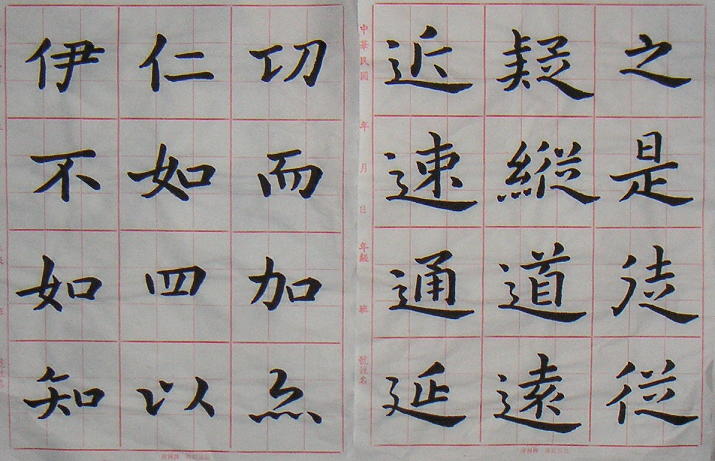 之是徒従
疑縦道遠
近速通延
中華民國 年 月 日 年級 班 號姓名
切而加点
仁如四以
伊不如知